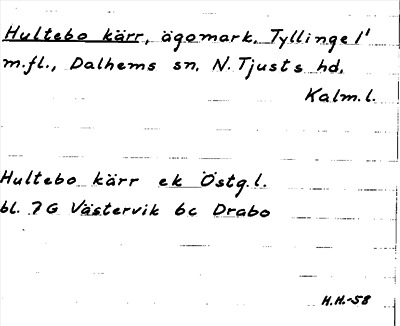 Hultebo kärr, ägomark, Tyllinge 1'
m.fl., Dalhems sn, N. Tjusts hd,
Kalm.l.
Hultebo kärr ek Östg.l.
bl. 7G Västervik 6c Drabo
H.H.-58